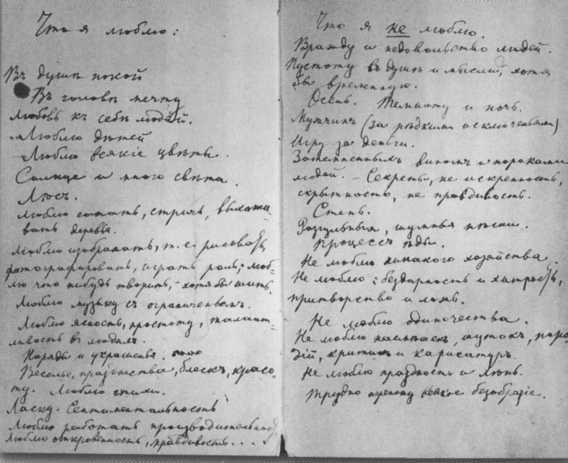 Что я люблю:
Въ душѣ покой
Въ головѣ мечту
Любовь къ себѣ людей.
Люблю дѣтей
Люблю всякіе цвѣты.
Солнце и много свѣта.
Лѣсъ.
Люблю сажать, стричь, выхажи-
вать деревья.
Люблю изображать, т.е. рисовать,
фотографировать, играть роль; люб-
лю что нибудь творить, – хотя бы шить.
Люблю музыку съ ограниченіемъ.
Люблю ясность, простоту, талант-
ливость въ людяхъ.
Наряды и украшенія.
Веселье, празднества, блескъ, красо-
ту. Люблю стихи.
Ласку. Сентиментальность
Люблю работать производительно
Люблю откровенность, правдивость...
Что я не люблю.
Вражду и недовольство людей.
Пустоту въ душѣ и мысляхъ, хотя
бы временную.
Осень. Темноту и ночь.
Мужчинъ (за рѣдкими исключеніями)
Игру за деньги.
Затемненныхъ виномъ и пороками
людей. – Секреты, не искренность,
скрытность, не правдивость.
Степь.
Разгульныя, шумныя пѣсни.
Процессъ ѣды.
Не люблю никакого хозяйства.
Не люблю: бездарность и хитрость,
притворство и ложь.
Не люблю одиночества.
Не люблю насмѣшекъ, шутокъ, паро-
дій, критики и карикатуръ.
Не люблю праздность и лѣнь.
Трудно переношу всякое безобразіе.